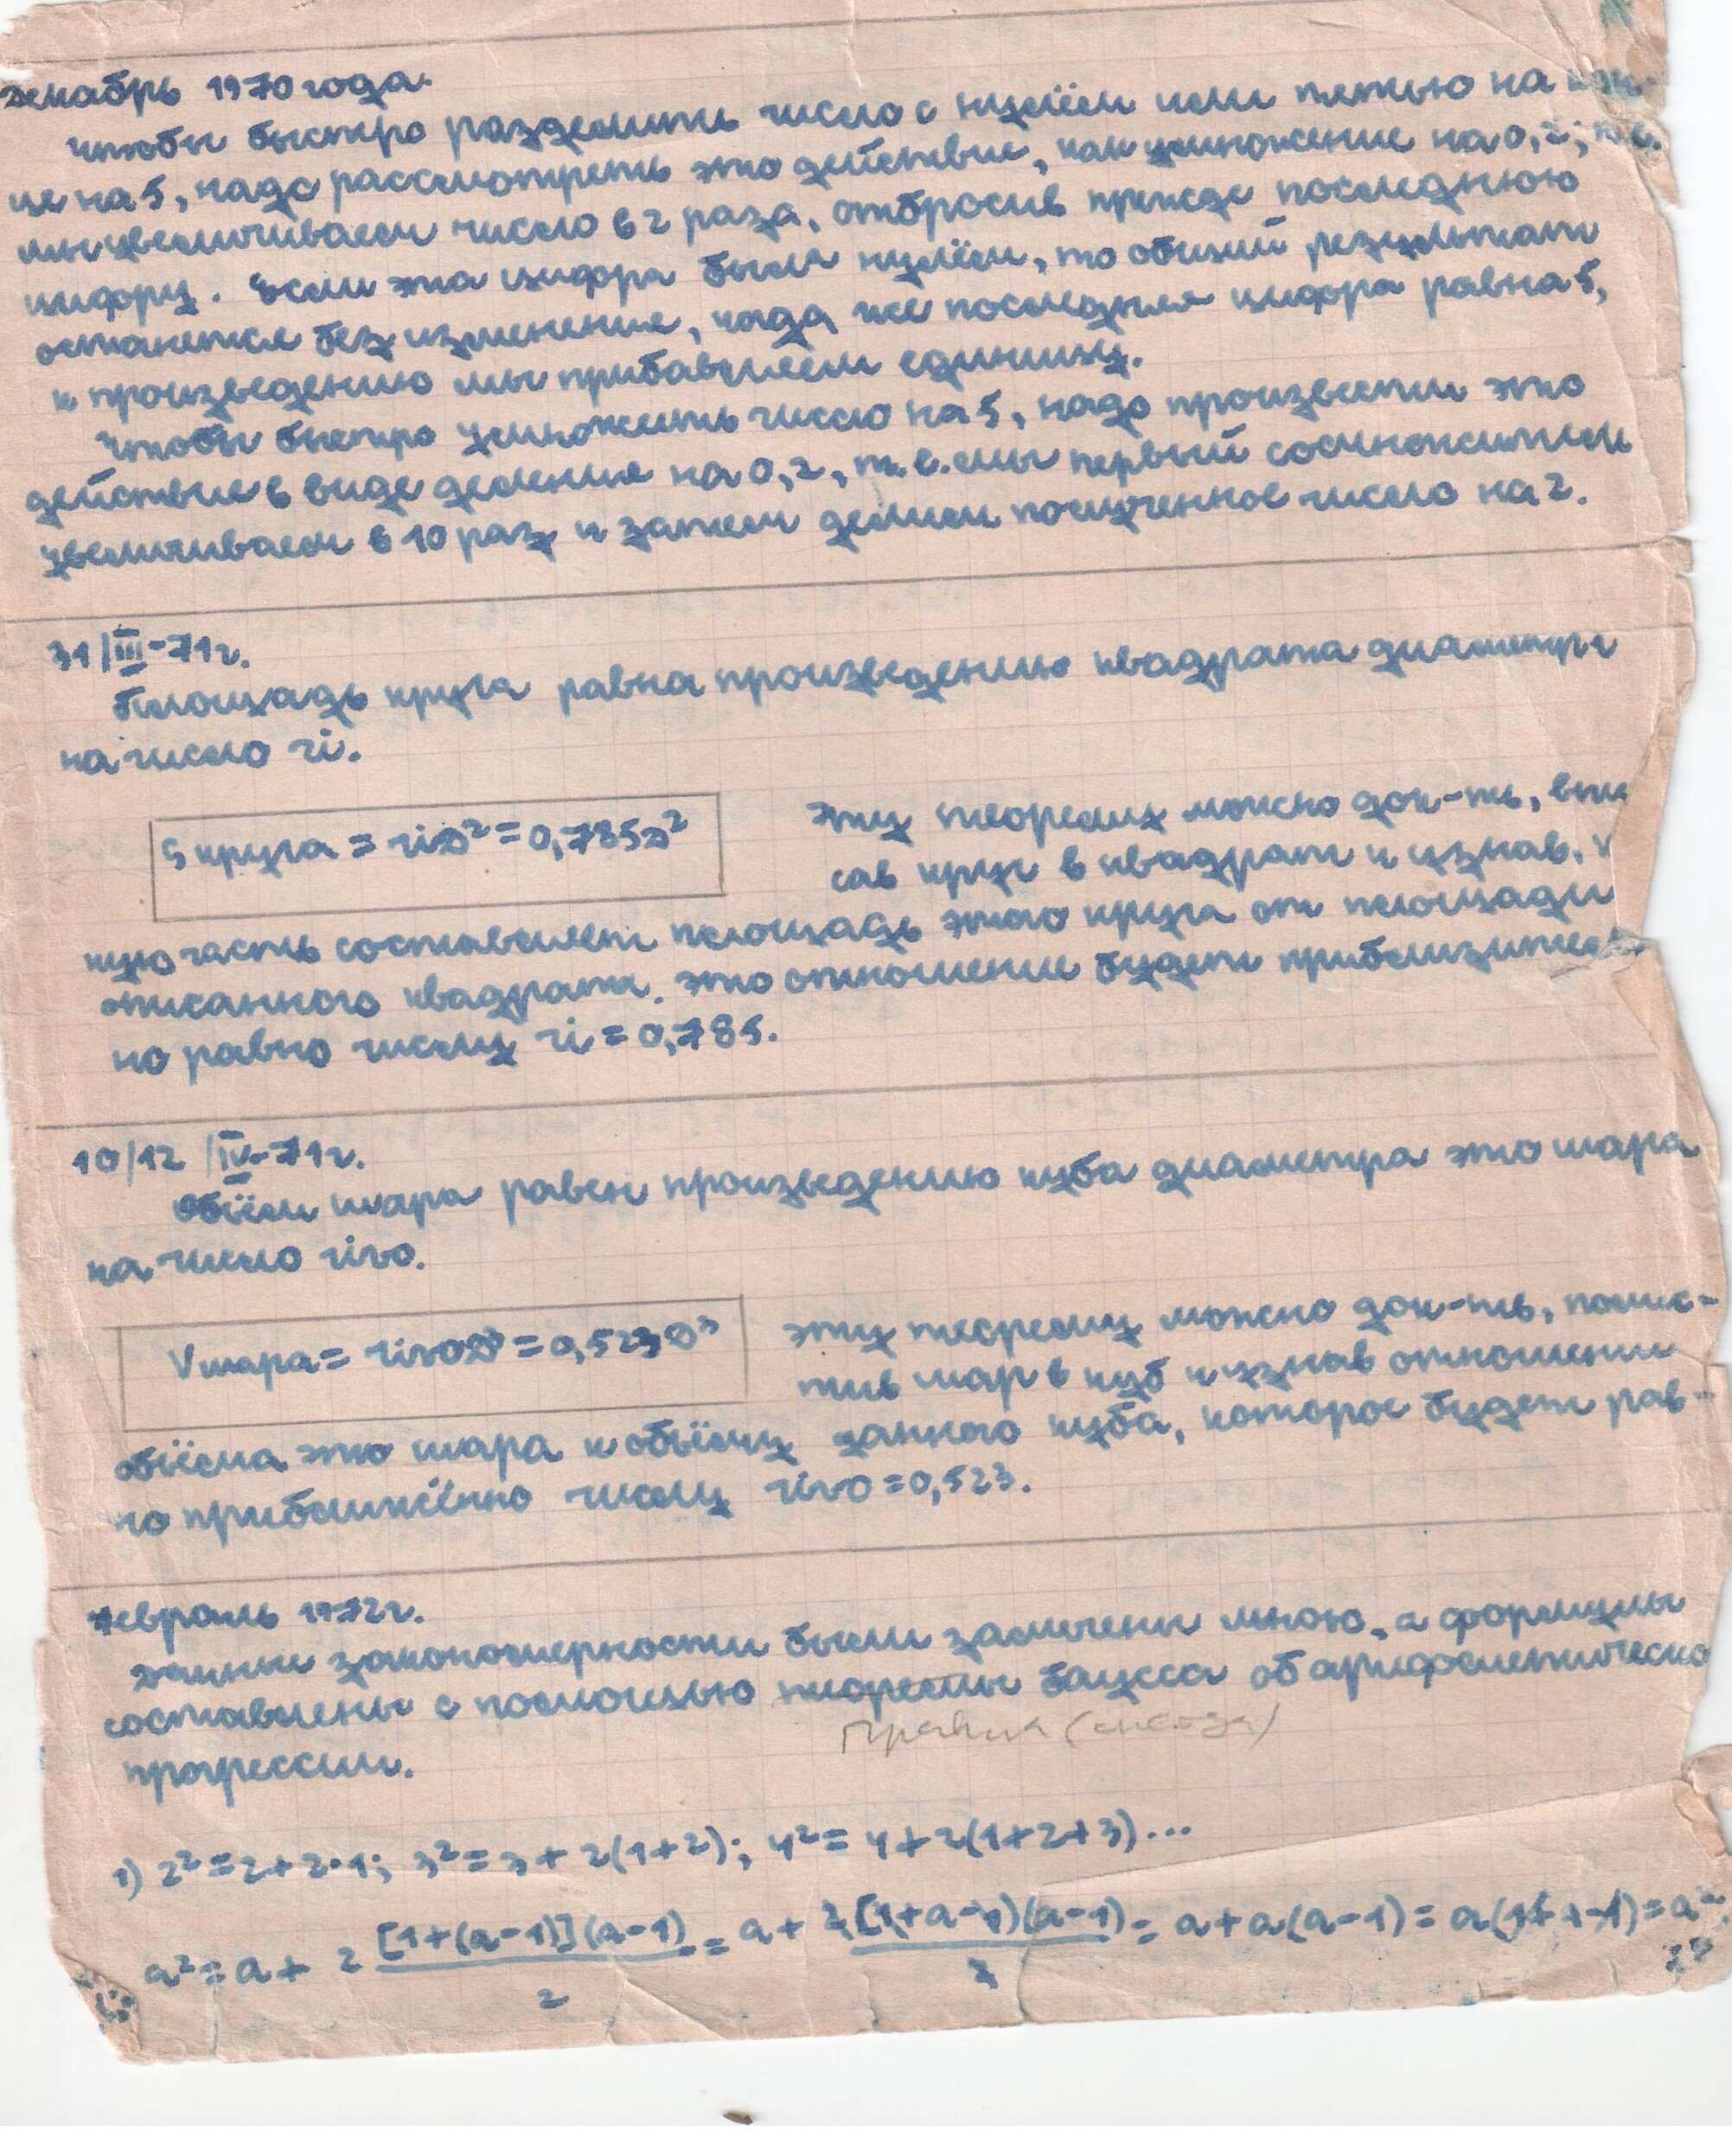 Декабрь 1970 года.
Чтобы быстро разделить число с нулём или пятью на кон-
це на 5, надо рассмотреть это действие, как умножение на 0,2; т.е.
мы увеличиваем число в 2 раза, отбросив прежде последнюю
цифру. Если эта цифра была нулём, то общий результат
останется без изменения, когда же последняя цифра равна 5,
к произведению мы прибавляем единицу.
Чтобы быстро умножить число на 5, надо произвести это
действие в виде деления на 0,2, т.е. мы первый сомножитель
увеличиваем в 10 раз и затем делим полученное число на 2.
31/III-71г.
Площадь круга равна произведению квадрата диаметра
на число ri.
S круга = riD² = 0,785D²
Эту теорему можно док-ть, впи
сав круг в квадрат и узнав,
кую часть составляет площадь этого круга от площади
описанного квадрата. Это отношение будет приблизитель
но равно числу ri = 0,785.
10/12 /IV-71г.
Объём шара равен произведению куба диаметра это шара
на число rivo.
V шара = rivoD³ = 0,523D³
Эту теорему можно док-ть, помес-
тив шар в куб и узнав отношение
объёма это шара к объёму данного куба, которое будет рав-
но приближённо числу rivo = 0,523.
Февраль 1972г.
Данные закономерности были замечены мною, а формулы
составлены с помощью теоремы Гаусса об арифметической
Правила
прогрессии.
1) 2² = 2+2·1; 3² = 3+2(1+2); 4² = 4+2(1+2+3)...
a² = a + 2 [1+(a-1)](a-1)/2 = a + 2[1+a-1)(a-1)/2 = a+a(a-1) = a(1+a-1) = a²